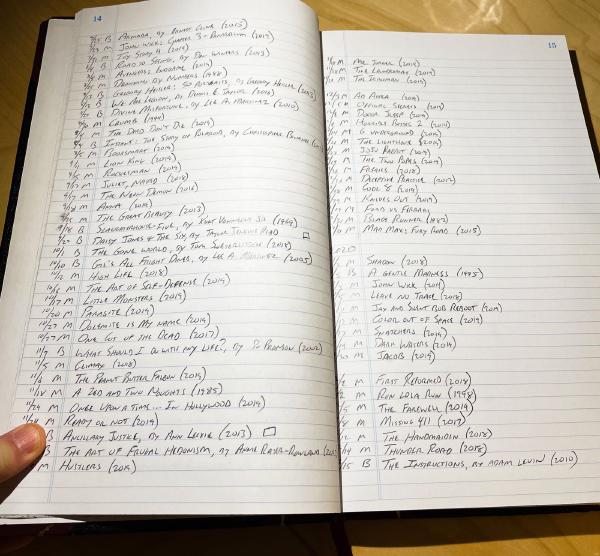 14
B Armada, by Ernest Cline (2015)
M John Wick: Chapter 3 - Parabellum (2019)
M Toy Story 4 (2019)
B Road to Seeing, by Dan Winters (2013)
M Avengers: Endgame (2019)
M Drowning by Numbers (1988)
B Gregory Heisler: 50 Portraits, by Gregory Heisler (2013)
B We Are Legion, by Dennis E. Taylor (2016)
B Divine Misfortune, by Lee A. Martinez (2010)
M Crumb (1994)
M The Dead Don't Die (2019)
B Infinite: The Story of, by Christopher
M Booksmart (2019)
M Lion King (2019)
M Rocketman (2019)
M Juliet, Naked (2018)
M The Neon Demon (2016)
M Anna (2019)
M The Great Beauty (2013)
B Slaughterhouse-Five, by Kurt Vonnegut Jr. (1969)
B Daisy Jones & The Six, by Taylor Jenkins Reid
10/1 B The Gone World, by Tom Sweterlitsch (2018)
10/10 B Gil's All Fright Diner, by Lee A. Martinez (2005)
10/12 M High Life (2018)
M The Art of Self-Defense (2019)
10/17 M Little Monsters (2019)
10/20 M Parasite (2019)
10/27 M Dolemite Is My Name (2019)
10/27 M One Cut of the Dead (2017)
11/7 B What Should I Do with My Life?, by Po Bronson (2002)
11/5 M Climax (2018)
11/6 M The Peanut Butter Falcon (2019)
11/18 M A Zed and Two Noughts (1985)
11/24 M Once Upon a Time... In Hollywood (2019)
11/24 M Ready or Not (2019)
B Ancillary Justice, by Ann Leckie (2013)
B The Art of Frugal Hedonism, by Annie Raser-Rowland
M Hustlers (2019)
15
M The Laundromat (2019)
M The Irishman (2019)
M Ad Astra (2019)
M Official Secrets (2019)
M Doctor Sleep (2019)
M Horrible Bosses 2 (2014)
M 6 Underground (2019)
M The Lighthouse (2019)
M Jojo Rabbit (2019)
M The Two Popes (2019)
M Freaks (2018)
M Deceptive Practice (2012)
M Code 8 (2019)
M Knives Out (2019)
M Ford vs Ferrari
M Blade Runner (1982)
M Mad Max: Fury Road (2015)
2020
M Shadow (2018)
B A Gentle Madness (1995)
M John Wick (2014)
M Leave No Trace (2018)
M Jay and Silent Bob Reboot (2019)
M Color Out of Space (2019)
M Snatchers (2019)
M Dark Waters (2019)
M Jacob (2019)
M First Reformed (2018)
M Run Lola Run (1998)
M The Farewell (2019)
M Missing 411 (2017)
M The Handmaiden (2016)
M Thunder Road (2018)
B The Instructions, by Adam Levin (2010)